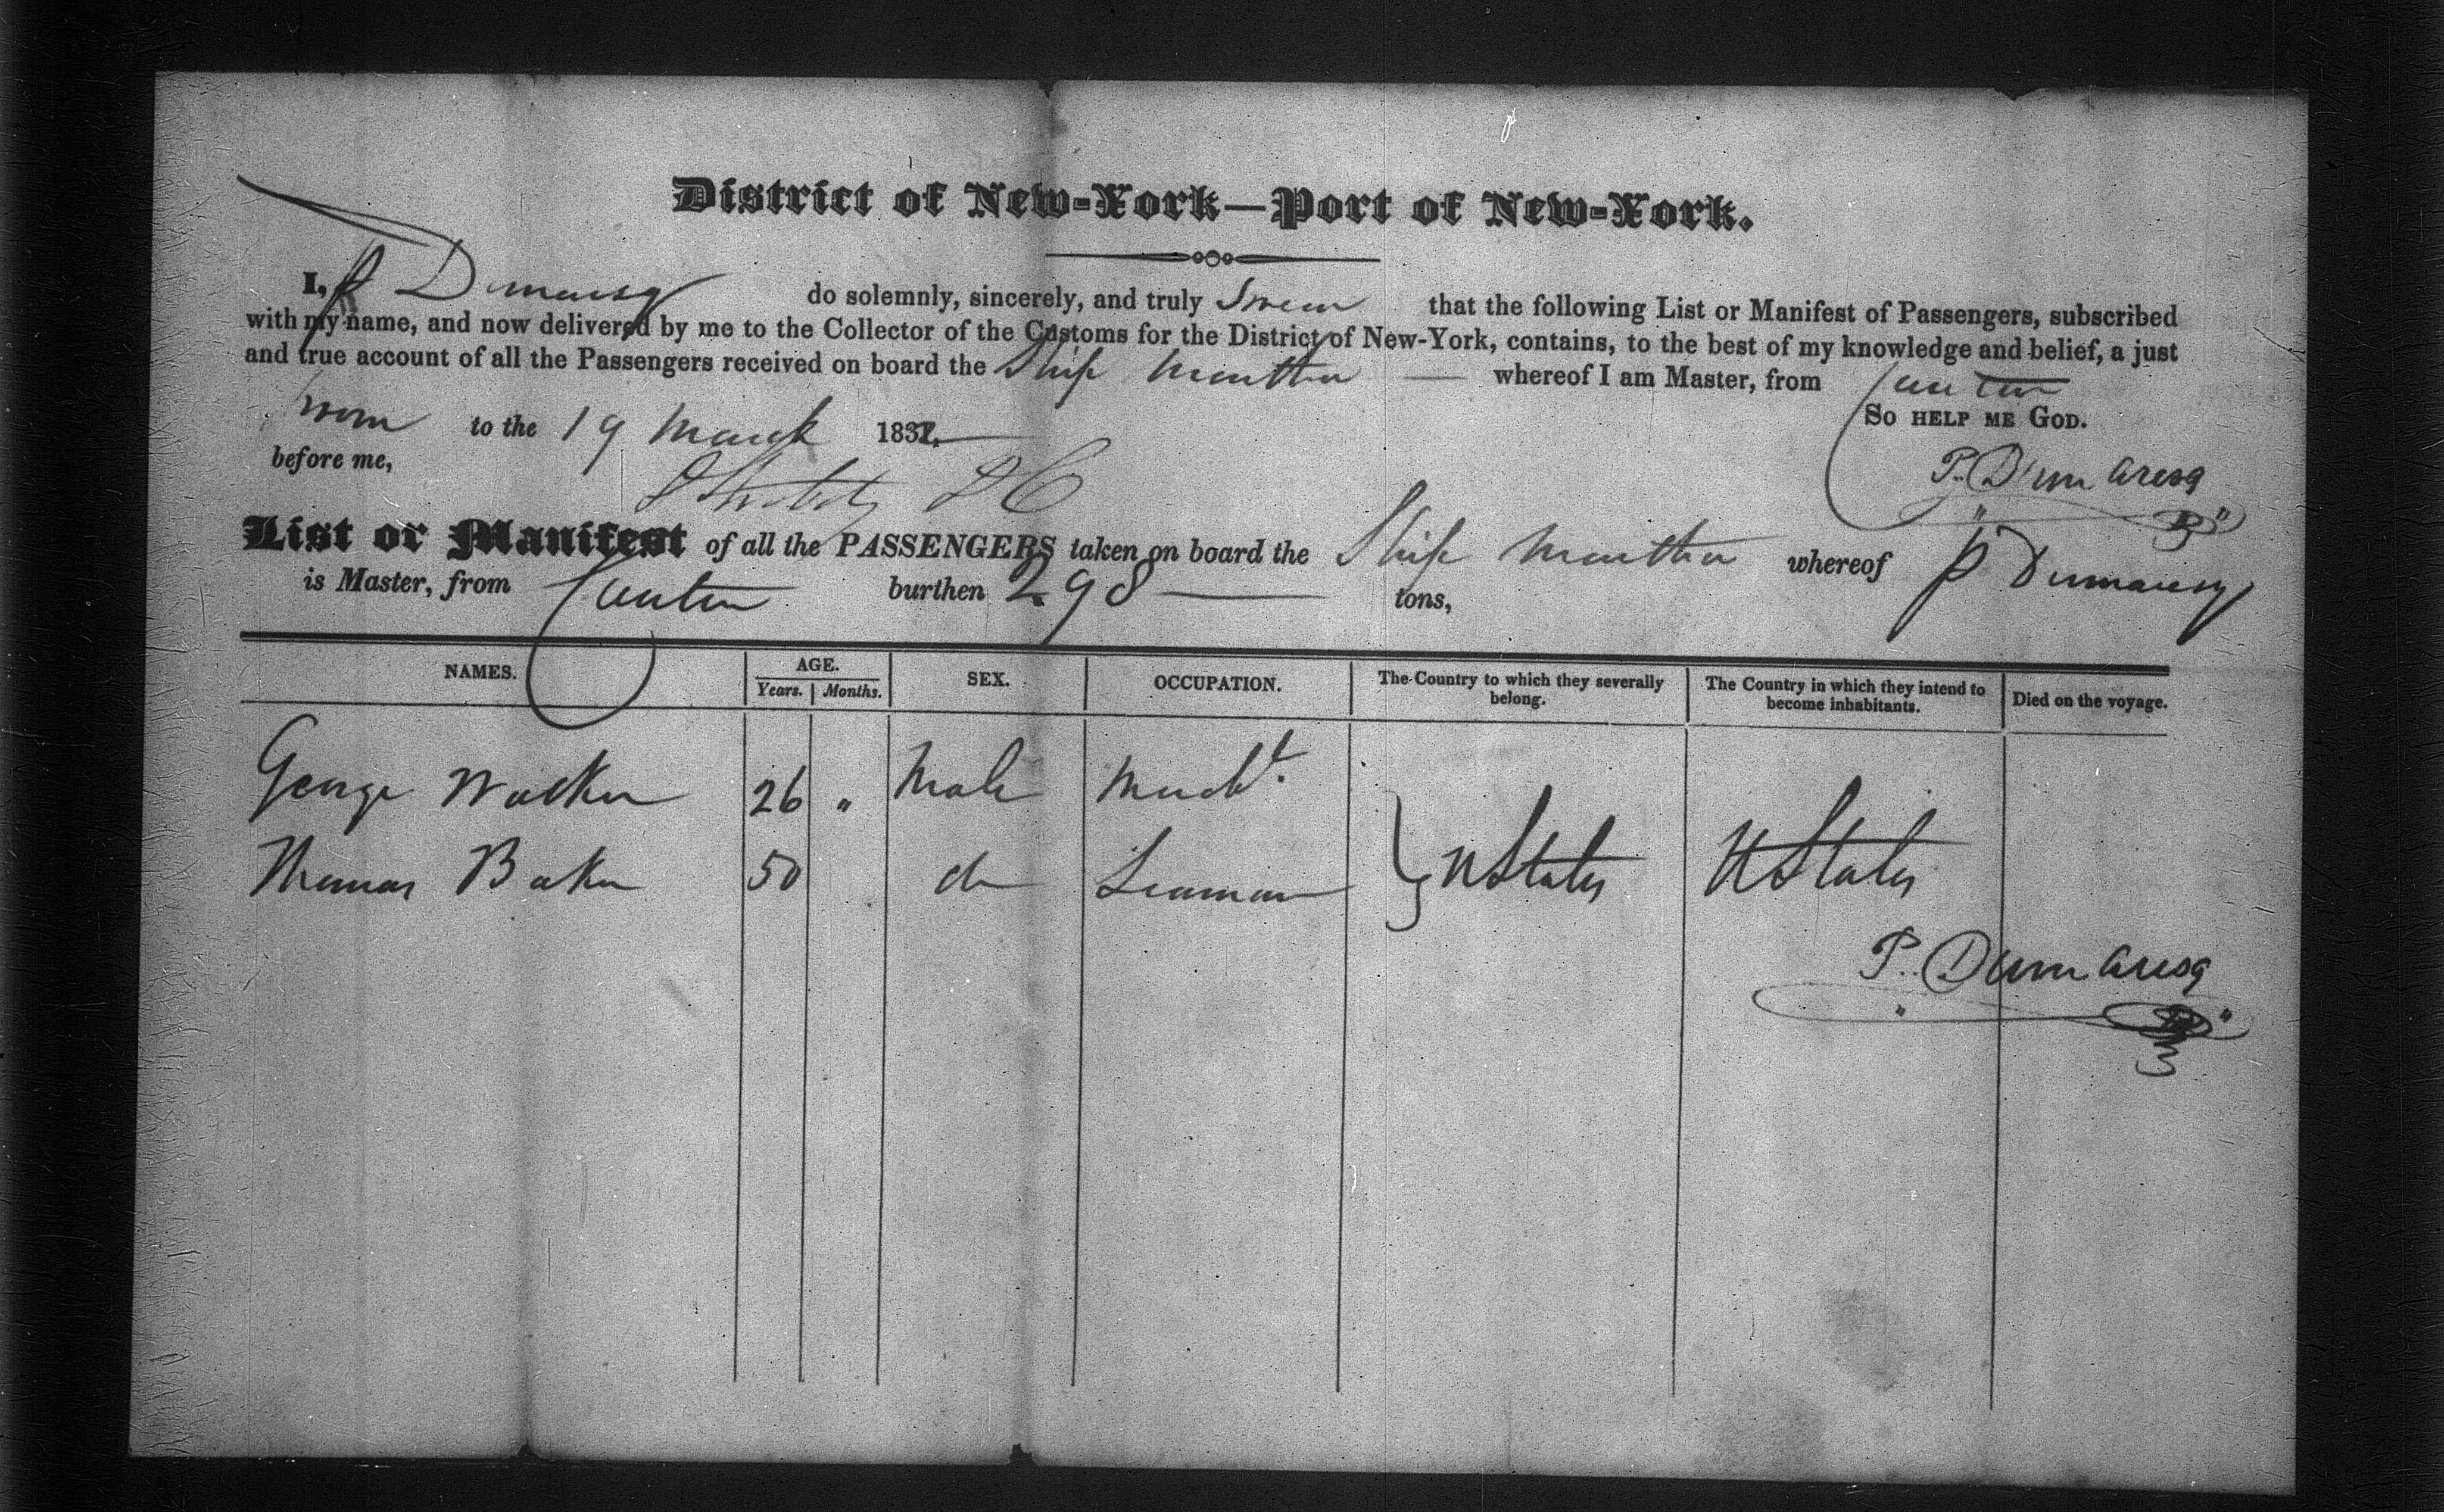 District of New-York—Port of New-York.
I, P Dumaresq do solemnly, sincerely, and truly Swear that the following List or Manifest of Passengers, subscribed
with my name, and now delivered by me to the Collector of the Customs for the District of New-York, contains, to the best of my knowledge and belief, a just
and true account of all the Passengers received on board the Ship Martha — whereof I am Master, from Canton
Sworn to the 19 March 183
So HELP ME GOD.
before me,
P. Dumaresq
List or Manifest of all the PASSENGERS taken on board the Ship Martha whereof P Dumaresq
is Master, from Canton burthen 298 — tons,
NAMES. AGE. SEX. OCCUPATION. The Country to which they severally belong. The Country in which they intend to become inhabitants. Died on the voyage.
Years. Months.
George Walker 26 " Male Mercht.
Thomas Baker 50 do Seaman } U States U States
P. Dumaresq